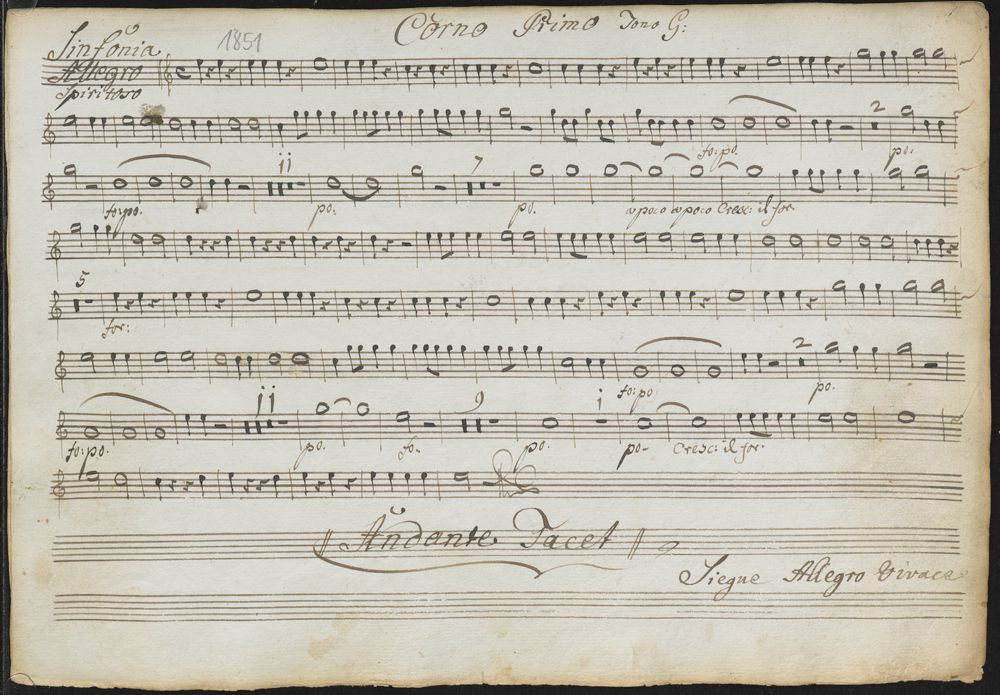 Corno Primo Tono G:
Sinfonia 1851
Allegro
Spiritoso
fo: po. 2 po.
fo: po. ii po: 7 po. a poco a poco Cresc: il for.
5
for:
fo: po. 2 po.
fo: po. ii po. fo. 9 po. i po- Cresc: il for.
Andante Tacet
Siegue Allegro Vivace